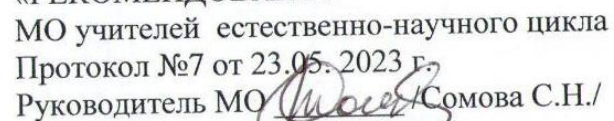 МО учителей естественно-научного цикла
Протокол №7 от 23.05. 2023 г.
Руководитель МО /Сомова С.Н./